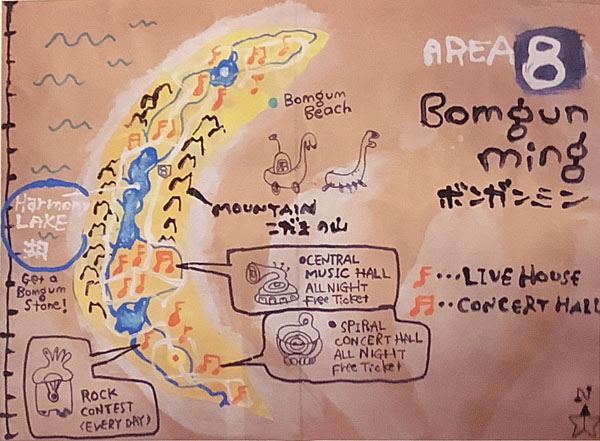 AREA 8
Bomgun
ming
ボンガンミン
Bomgum
Beach
Harmony
LAKE
Get a
Bomgum
Stone!
MOUNTAIN
こだまの山
•CENTRAL
MUSIC HALL
ALL NIGHT
Free Ticket
•SPIRAL
CONCERT HALL
ALL NIGHT
Free Ticket
ROCK
CONTEST
(EVERY DAY)
♪…LIVE HOUSE
♬‥CONCERT HALL
N